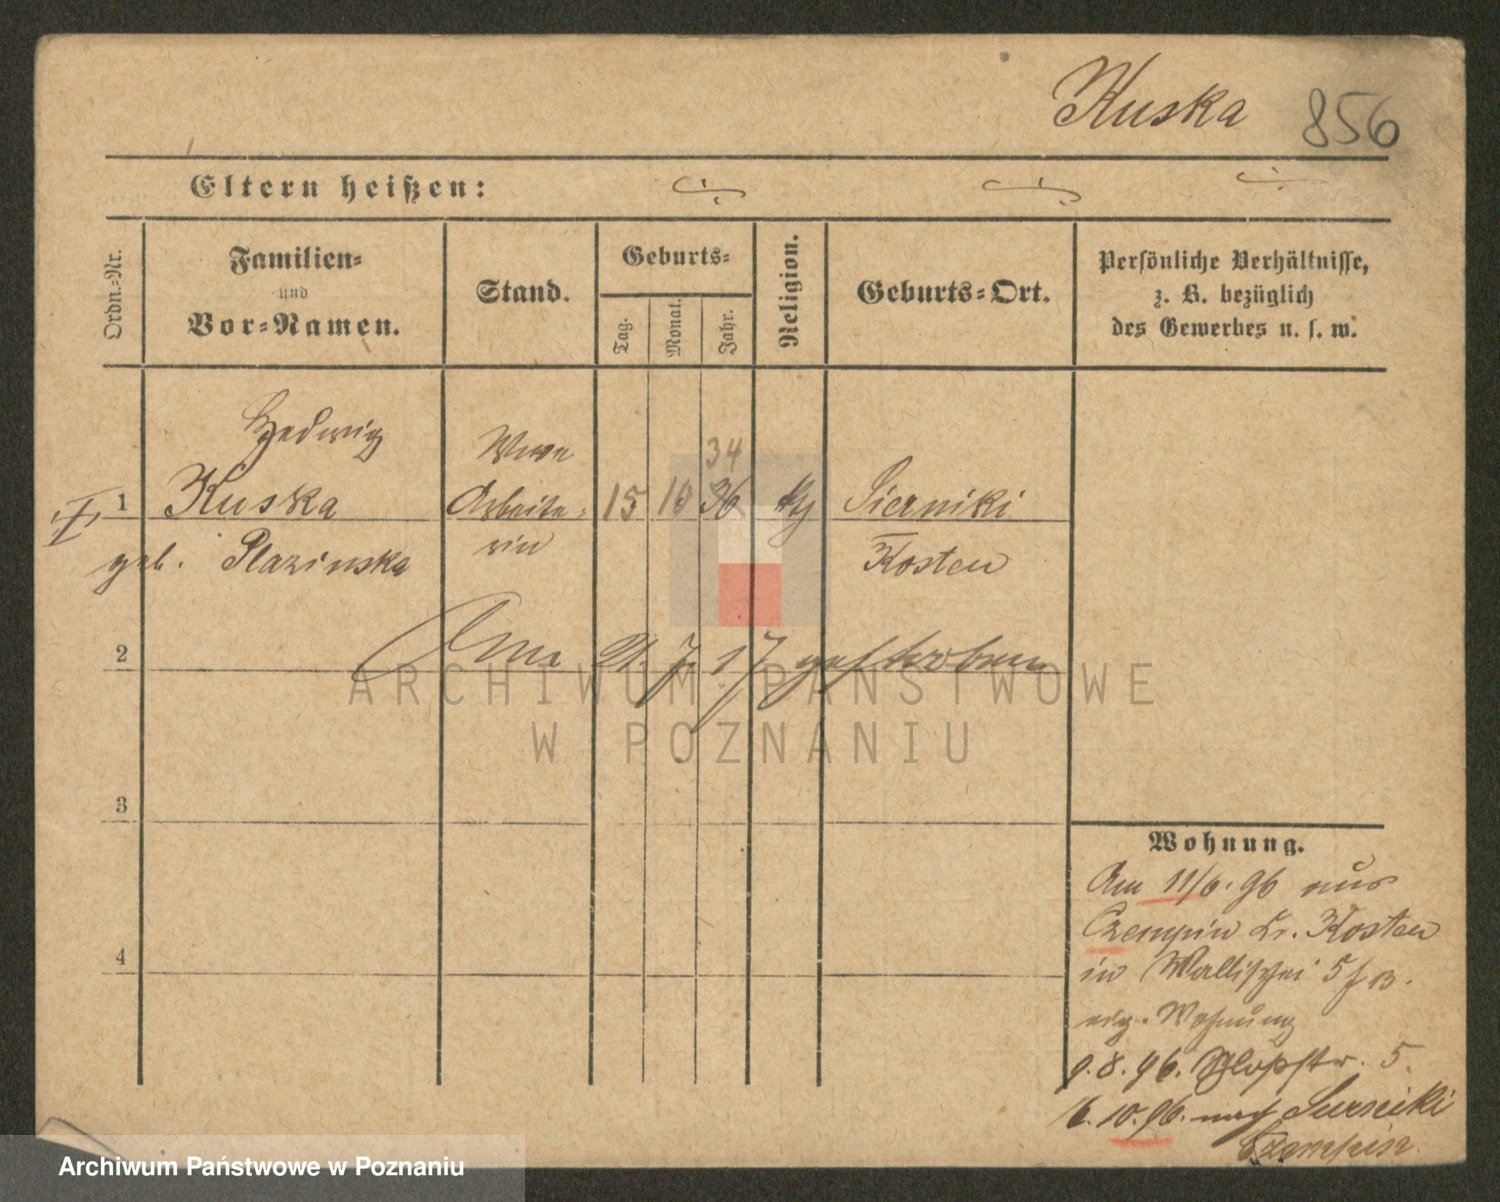 Kuska 856
Eltern heißen:
Ordn.-Nr.
Familien-
und
Vor-Namen.
Stand.
Geburts-
Tag.
Monat.
Jahr.
Religion.
Geburts-Ort.
Persönliche Verhältnisse,
z. B. bezüglich
des Gewerbes u. s. w.
Hedwig
34
1 Kuska Arbeite- 15 10 36 Sierniki
geb. Plazinska rin Kosten
2 21. 7. 17 gestorben
ARCHIWUM PAŃSTWOWE
W POZNANIU
3
Wohnung.
Am 11/6. 96 aus
Czempin Kr. Kosten
in Wallischei 5 f B.
4
eig. Wohnung
9. 8. 96. 5.
6. 10. 96. nach Surniki
Czempin
Archiwum Państwowe w Poznaniu